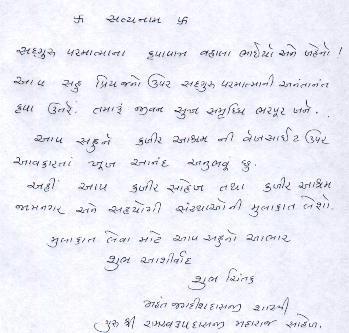 卐 સત્યનામ 卐
સદ્ગુરુ પરમાત્માના કૃપાપાત્ર વહાલા ભાઈયો અને બહેનો !
આપ સહુ પ્રિયજનો ઉપર સદ્ગુરુ પરમાત્માની અનંતાનંત
કૃપા ઉતરે. તમારૂં જીવન સુખ સમૃધ્ધિ ભરપૂર બને..
આપ સહુને કબીર આશ્રમ ની વેબસાઈટ ઉપર
આવકારતાં ખૂબ આનંદ અનુભવું છુ.
અહીં આપ કબીર સાહેબ તથા કબીર આશ્રમ
જામનગર અને સહયોગી સંસ્થાઓની મુલાકાત લેશો.
મુલાકાત લેવા માટે આપ સહુનો આભાર
શુભ આશીર્વાદ
શુભ ચિંતક
મહંત જગદીશદાસજી શાસ્ત્રી
ગુરુ શ્રી રામસ્વરૂપદાસજી મહારાજ સાહેબ.